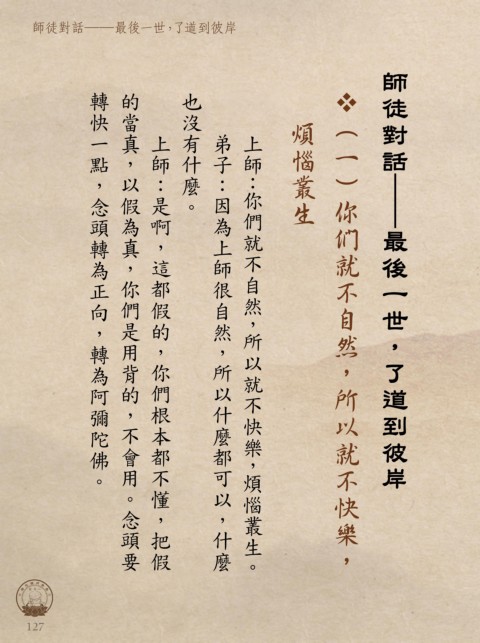 師徒對話——最後一世，了道到彼岸
師徒對話——最後一世，了道到彼岸
❖（一）你們就不自然，所以就不快樂，
煩惱叢生
上師：你們就不自然，所以就不快樂，煩惱叢生。
弟子：因為上師很自然，所以什麼都可以，什麼
也沒有什麼。
上師：是啊，這都假的，你們根本都不懂，把假
的當真，以假為真，你們是用背的，不會用。念頭要
轉快一點，念頭轉為正向，轉為阿彌陀佛。
127